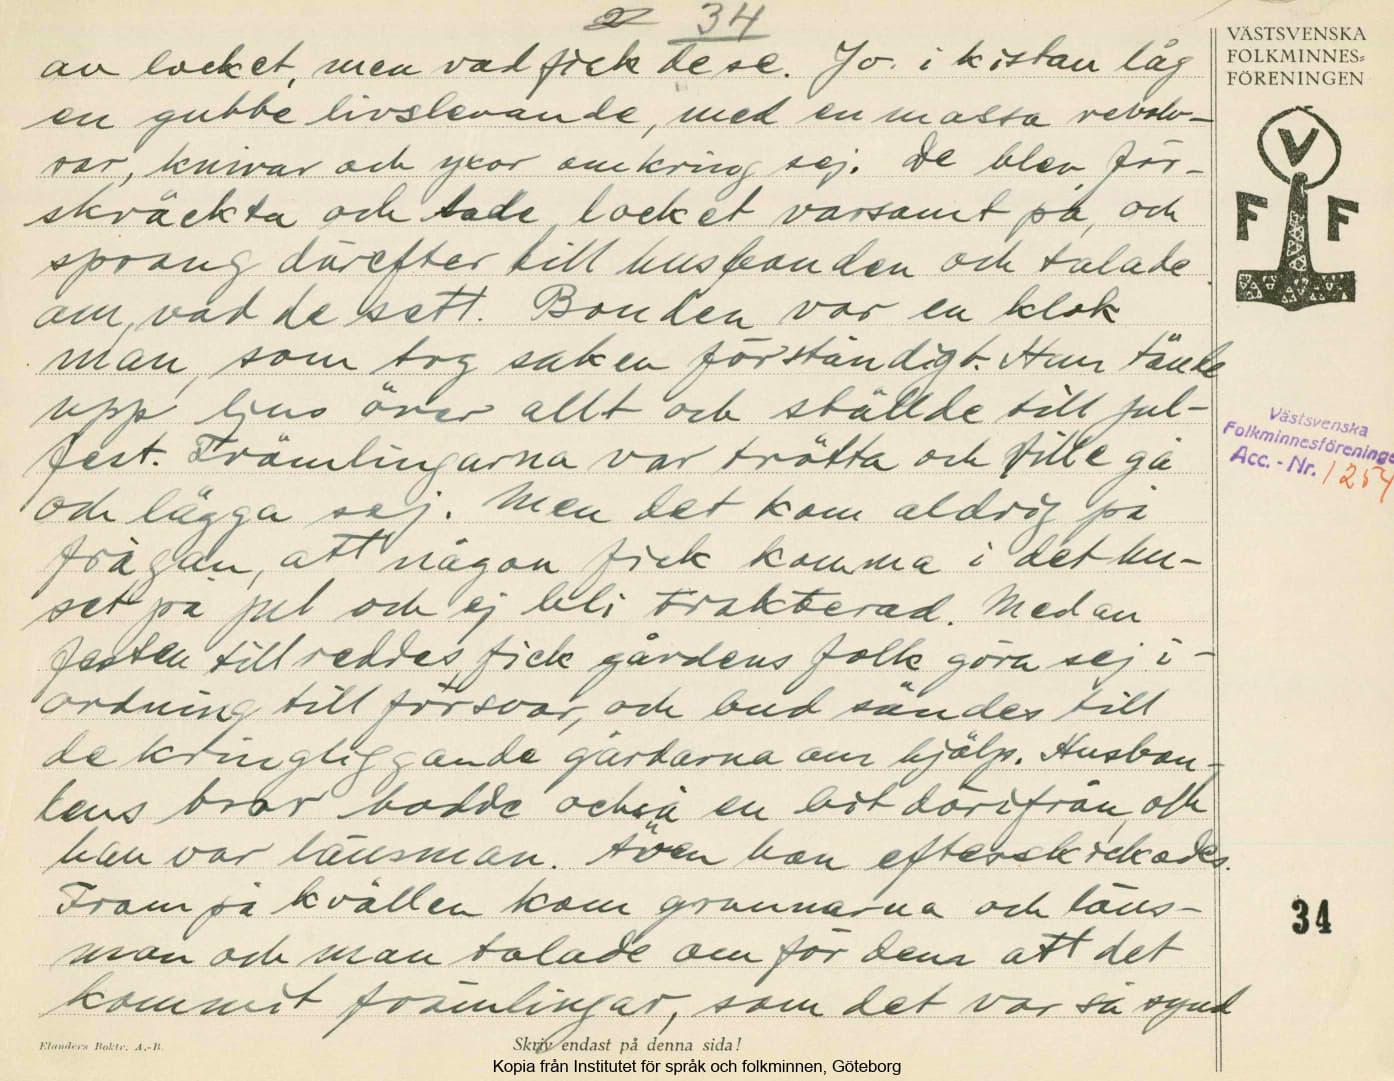 34
VÄSTSVENSKA
FOLKMINNES-
FÖRENINGEN
av locket, men vad fick de se. Jo. i kistan låg
en gubbe livslevande, med en massa revolv-
rar, knivar och yxor omkring sej. De blev för-
skräckta och lade locket varsamt på, och
sprang därefter till husbonden och talade
om, vad de sett. Bonden var en klok
man, som tog saken förståndigt. Han tände
upp ljus över allt och ställde till jul-
fest. Främlingarna var trötta och ville gå
och lägga sej. Men det kom aldrig på
frågan, att någon fick komma i det hu-
set på jul och ej bli trakterad. Medan
festen tillreddes, fick gårdens folk göra sej i-
ordning till försvar, och bud sändes till
de kringliggande gårdarna om hjälp. Husbon-
dens bror bodde också en bit därifrån, och
han var länsman. Även han efterskickades.
Fram på kvällen kom grannarna och läns-
man och man talade om för dem att det
kommit främlingar, som det var så synd
V
F F
Västsvenska
Folkminnesföreningen
Acc. - Nr. 1254
34
Elanders Boktr. A.-B.
Skriv endast på denna sida!
Kopia från Institutet för språk och folkminnen, Göteborg